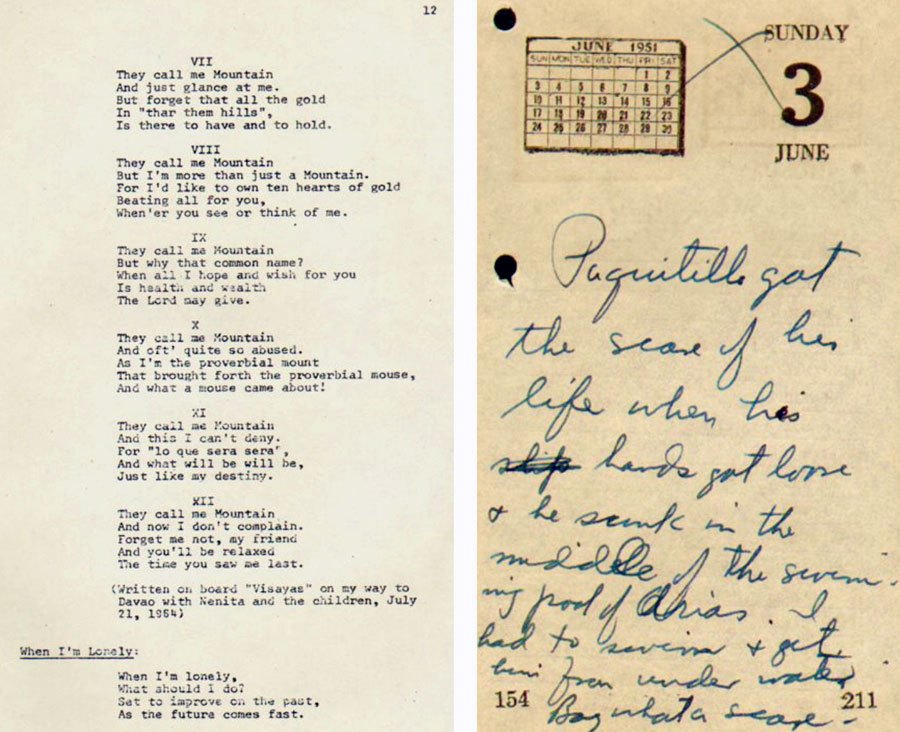 12
VII
They call me Mountain
And just glance at me.
But forget that all the gold
In "thar them hills",
Is there to have and to hold.
VIII
They call me Mountain
But I'm more than just a Mountain.
For I'd like to own ten hearts of gold
Beating all for you,
When'er you see or think of me.
IX
They call me Mountain
But why that common name?
When all I hope and wish for you
Is health and wealth
The Lord may give.
X
They call me Mountain
And oft' quite so abused.
As I'm the proverbial mount
That brought forth the proverbial mouse,
And what a mouse came about!
XI
They call me Mountain
And this I can't deny.
For "lo que sera sera",
And what will be will be,
Just like my destiny.
XII
They call me Mountain
And now I don't complain.
Forget me not, my friend
And you'll be relaxed
The time you saw me last.
(Written on board "Visayas" on my way to
Davao with Nenita and the children, July
21, 1964)
When I'm Lonely:
When I'm lonely,
What should I do?
Set to improve on the past,
As the future comes fast.
JUNE 1951
SUN MON TUE WED THU FRI SAT
1 2
3 4 5 6 7 8 9
10 11 12 13 14 15 16
17 18 19 20 21 22 23
24 25 26 27 28 29 30
SUNDAY
3
JUNE
Paquitillo got
the scare of his
life when his
hands got loose
& he sunk in the
middle of the swim-
ing pool of Arias. I
had to swim & get
him from under water
Boy what a scare-
154
211